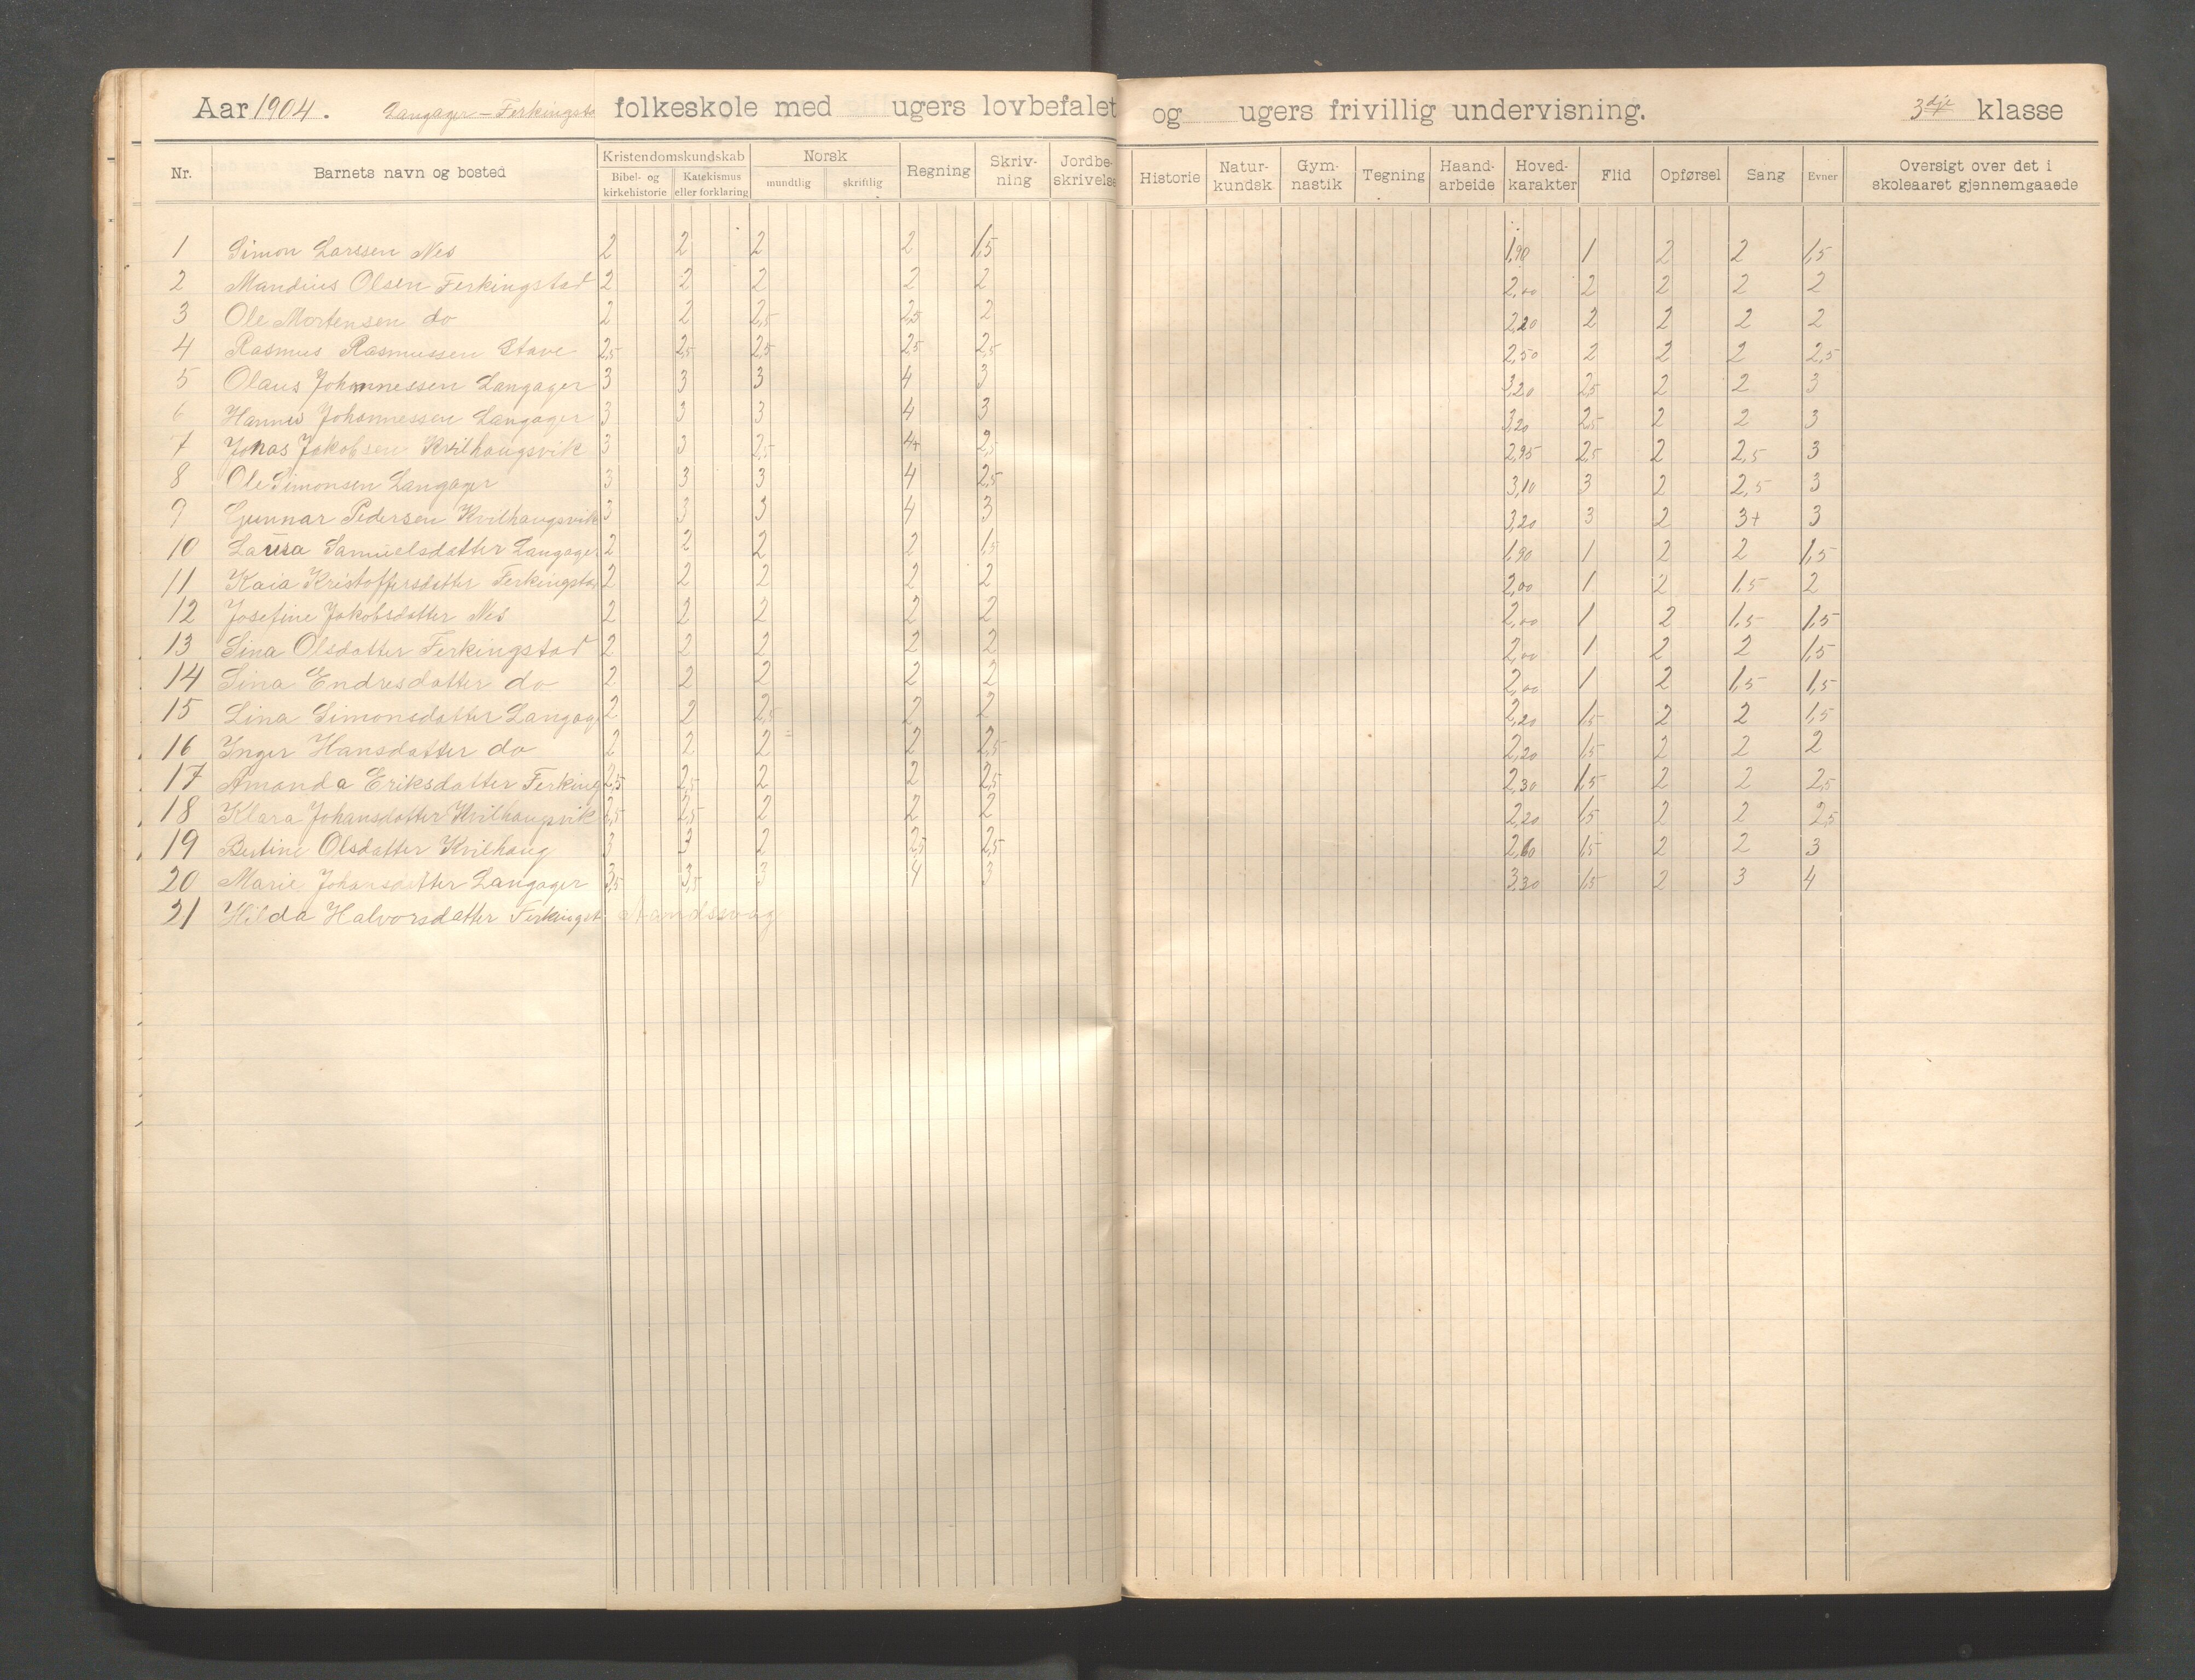 Aar 1904. Langager - Ferkingsta folkeskole med ugers lovbefalet og ugers frivillig undervisning. 3dje klasse
Nr. Barnets navn og bosted Kristendomskundskab Bibel- og kirkehistorie Katekismus eller forklaring Norsk mundtlig skriftlig Regning Skriv-ning Jordbe-skrivelse Historie Natur-kundsk. Gym-nastik Tegning Haand-arbeide Hoved-karakter Flid Opførsel Sang Evner Oversigt over det i skoleaaret gjennemgaaede
1 Simon Larssen Nes 2 2 2 2 1,5 1,90 1 2 2 1,5
2 Mandius Olsen Ferkingstad 2 2 2 2 2 2,00 2 2 2 2
3 Ole Mortensen do 2 2 2,5 2,5 2 2,20 2 2 2 2
4 Rasmus Rasmussen Stave 2,5 2,5 2,5 2,5 2,5 2,50 2 2 2 2,5
5 Olaus Johannessen Langager 3 3 3 4 3 3,20 2,5 2 2 3
6 Hannes Johannessen Langager 3 3 3 4 3 3,20 2,5 2 2 3
7 Jonas Jakobsen Kvilhaugsvik 3 3 2,5 4+ 2,5 2,95 2,5 2 2,5 3
8 Ole Simonsen Langager 3 3 3 4 2,5 3,10 3 2 2,5 3
9 Gunnar Pedersen Kvilhaugsvik 3 3 3 4 3 3,20 3 2 3+ 3
10 Laura Samuelsdatter Langager 2 2 2 2 1,5 1,90 1 2 2 1,5
11 Kaia Kristoffersdatter Ferkingstad 2 2 2 2 2 2,00 1 2 1,5 2
12 Josefine Jakobsdatter Nes 2 2 2 2 2 2,00 1 2 1,5 1,5
13 Sina Olsdatter Ferkingstad 2 2 2 2 2 2,00 1 2 2 1,5
14 Sina Endresdatter do 2 2 2 2 2 2,00 1 2 1,5 1,5
15 Lina Simonsdatter Langag 2 2 2,5 2 2 2,20 1,5 2 2 1,5
16 Inger Hansdatter do 2 2 2 2 2,5 2,20 1,5 2 2 2
17 Amanda Eriksdatter Ferking 2,5 2,5 2 2 2,5 2,30 1,5 2 2 2,5
18 Klara Johansdatter Kvilhaugsvik 2,5 2,5 2 2 2 2,20 1,5 2 2 2,5
19 Bertine Olsdatter Kvilhaug 3 3 2 2,5 2,5 2,60 1,5 2 2 3
20 Marie Johansdatter Langager 3,5 3,5 3 4 3 3,30 1,5 2 3 4
21 Hilda Halvorsdatter Ferkingst. Aandssvag